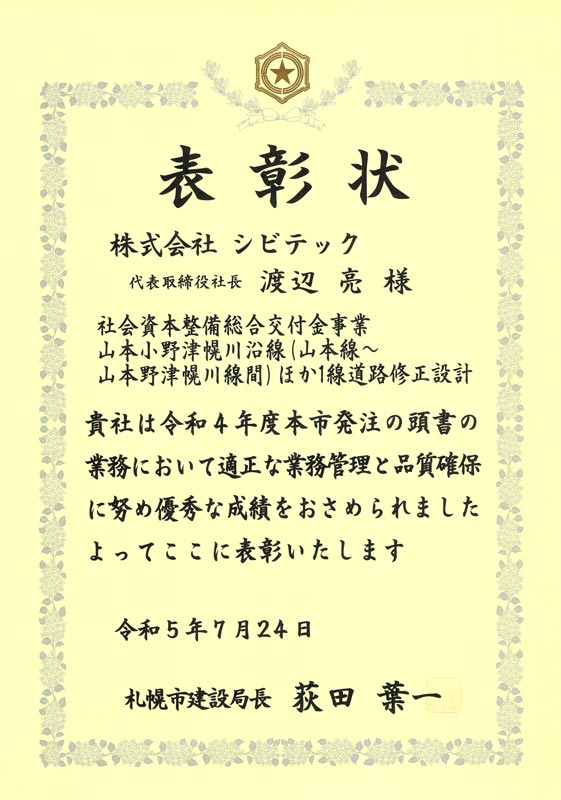 表彰状
株式会社 シビテック
代表取締役社長 渡辺 亮 様
社会資本整備総合交付金事業
山本小野津幌川沿線(山本線～
山本野津幌川線間)ほか1線道路修正設計
貴社は令和４年度本市発注の頭書の
業務において適正な業務管理と品質確保
に努め優秀な成績をおさめられました
よってここに表彰いたします
令和５年７月24日
札幌市建設局長 荻田 葉一